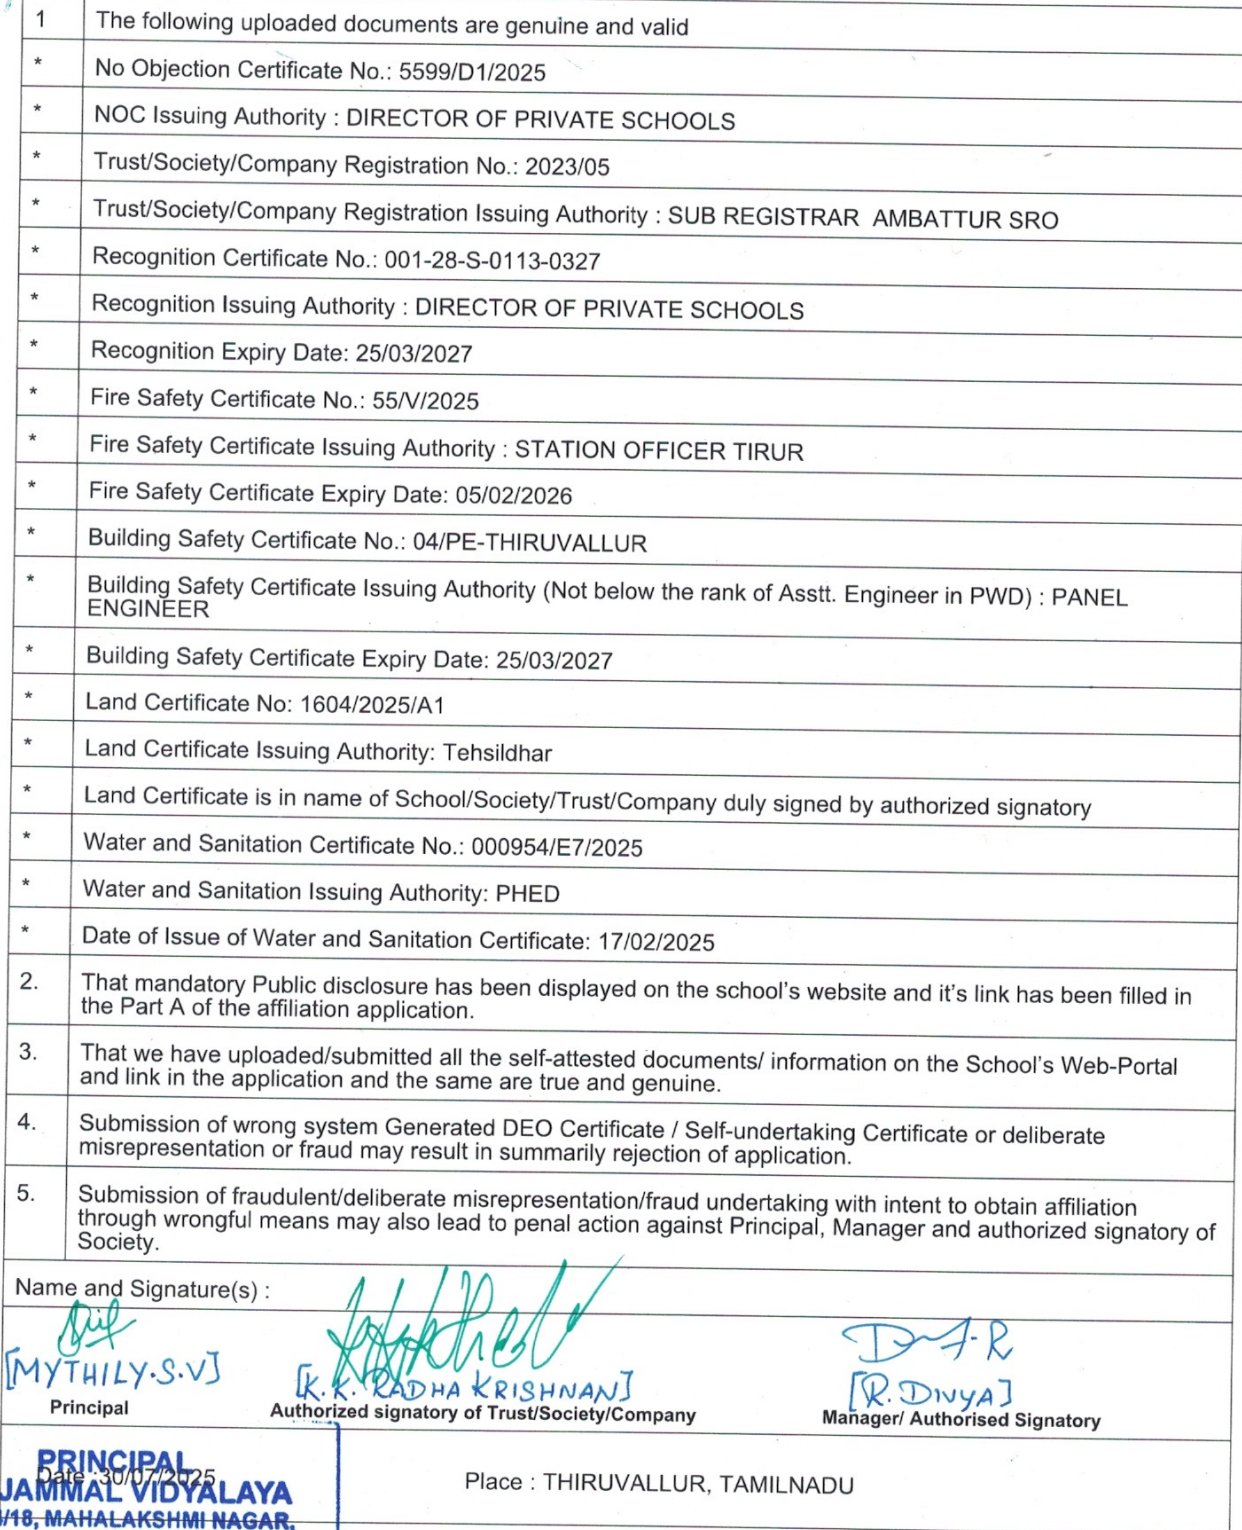 1 The following uploaded documents are genuine and valid
* No Objection Certificate No.: 5599/D1/2025
* NOC Issuing Authority : DIRECTOR OF PRIVATE SCHOOLS
* Trust/Society/Company Registration No.: 2023/05
* Trust/Society/Company Registration Issuing Authority : SUB REGISTRAR AMBATTUR SRO
* Recognition Certificate No.: 001-28-S-0113-0327
* Recognition Issuing Authority : DIRECTOR OF PRIVATE SCHOOLS
* Recognition Expiry Date: 25/03/2027
* Fire Safety Certificate No.: 55/V/2025
* Fire Safety Certificate Issuing Authority : STATION OFFICER TIRUR
* Fire Safety Certificate Expiry Date: 05/02/2026
* Building Safety Certificate No.: 04/PE-THIRUVALLUR
* Building Safety Certificate Issuing Authority (Not below the rank of Asstt. Engineer in PWD) : PANEL
ENGINEER
* Building Safety Certificate Expiry Date: 25/03/2027
* Land Certificate No: 1604/2025/A1
* Land Certificate Issuing Authority: Tehsildhar
* Land Certificate is in name of School/Society/Trust/Company duly signed by authorized signatory
* Water and Sanitation Certificate No.: 000954/E7/2025
* Water and Sanitation Issuing Authority: PHED
* Date of Issue of Water and Sanitation Certificate: 17/02/2025
2. That mandatory Public disclosure has been displayed on the school's website and it's link has been filled in
the Part A of the affiliation application.
3. That we have uploaded/submitted all the self-attested documents/ information on the School's Web-Portal
and link in the application and the same are true and genuine.
4. Submission of wrong system Generated DEO Certificate / Self-undertaking Certificate or deliberate
misrepresentation or fraud may result in summarily rejection of application.
5. Submission of fraudulent/deliberate misrepresentation/fraud undertaking with intent to obtain affiliation
through wrongful means may also lead to penal action against Principal, Manager and authorized signatory of
Society.
Name and Signature(s) :
[MYTHILY.S.V] [K.K. RADHA KRISHNAN] [R. DIVYA]
Principal Authorized signatory of Trust/Society/Company Manager/ Authorised Signatory
PRINCIPAL
Date :30/07/2025 Place : THIRUVALLUR, TAMILNADU
JAMMAL VIDYALAYA
/18, MAHALAKSHMI NAGAR,